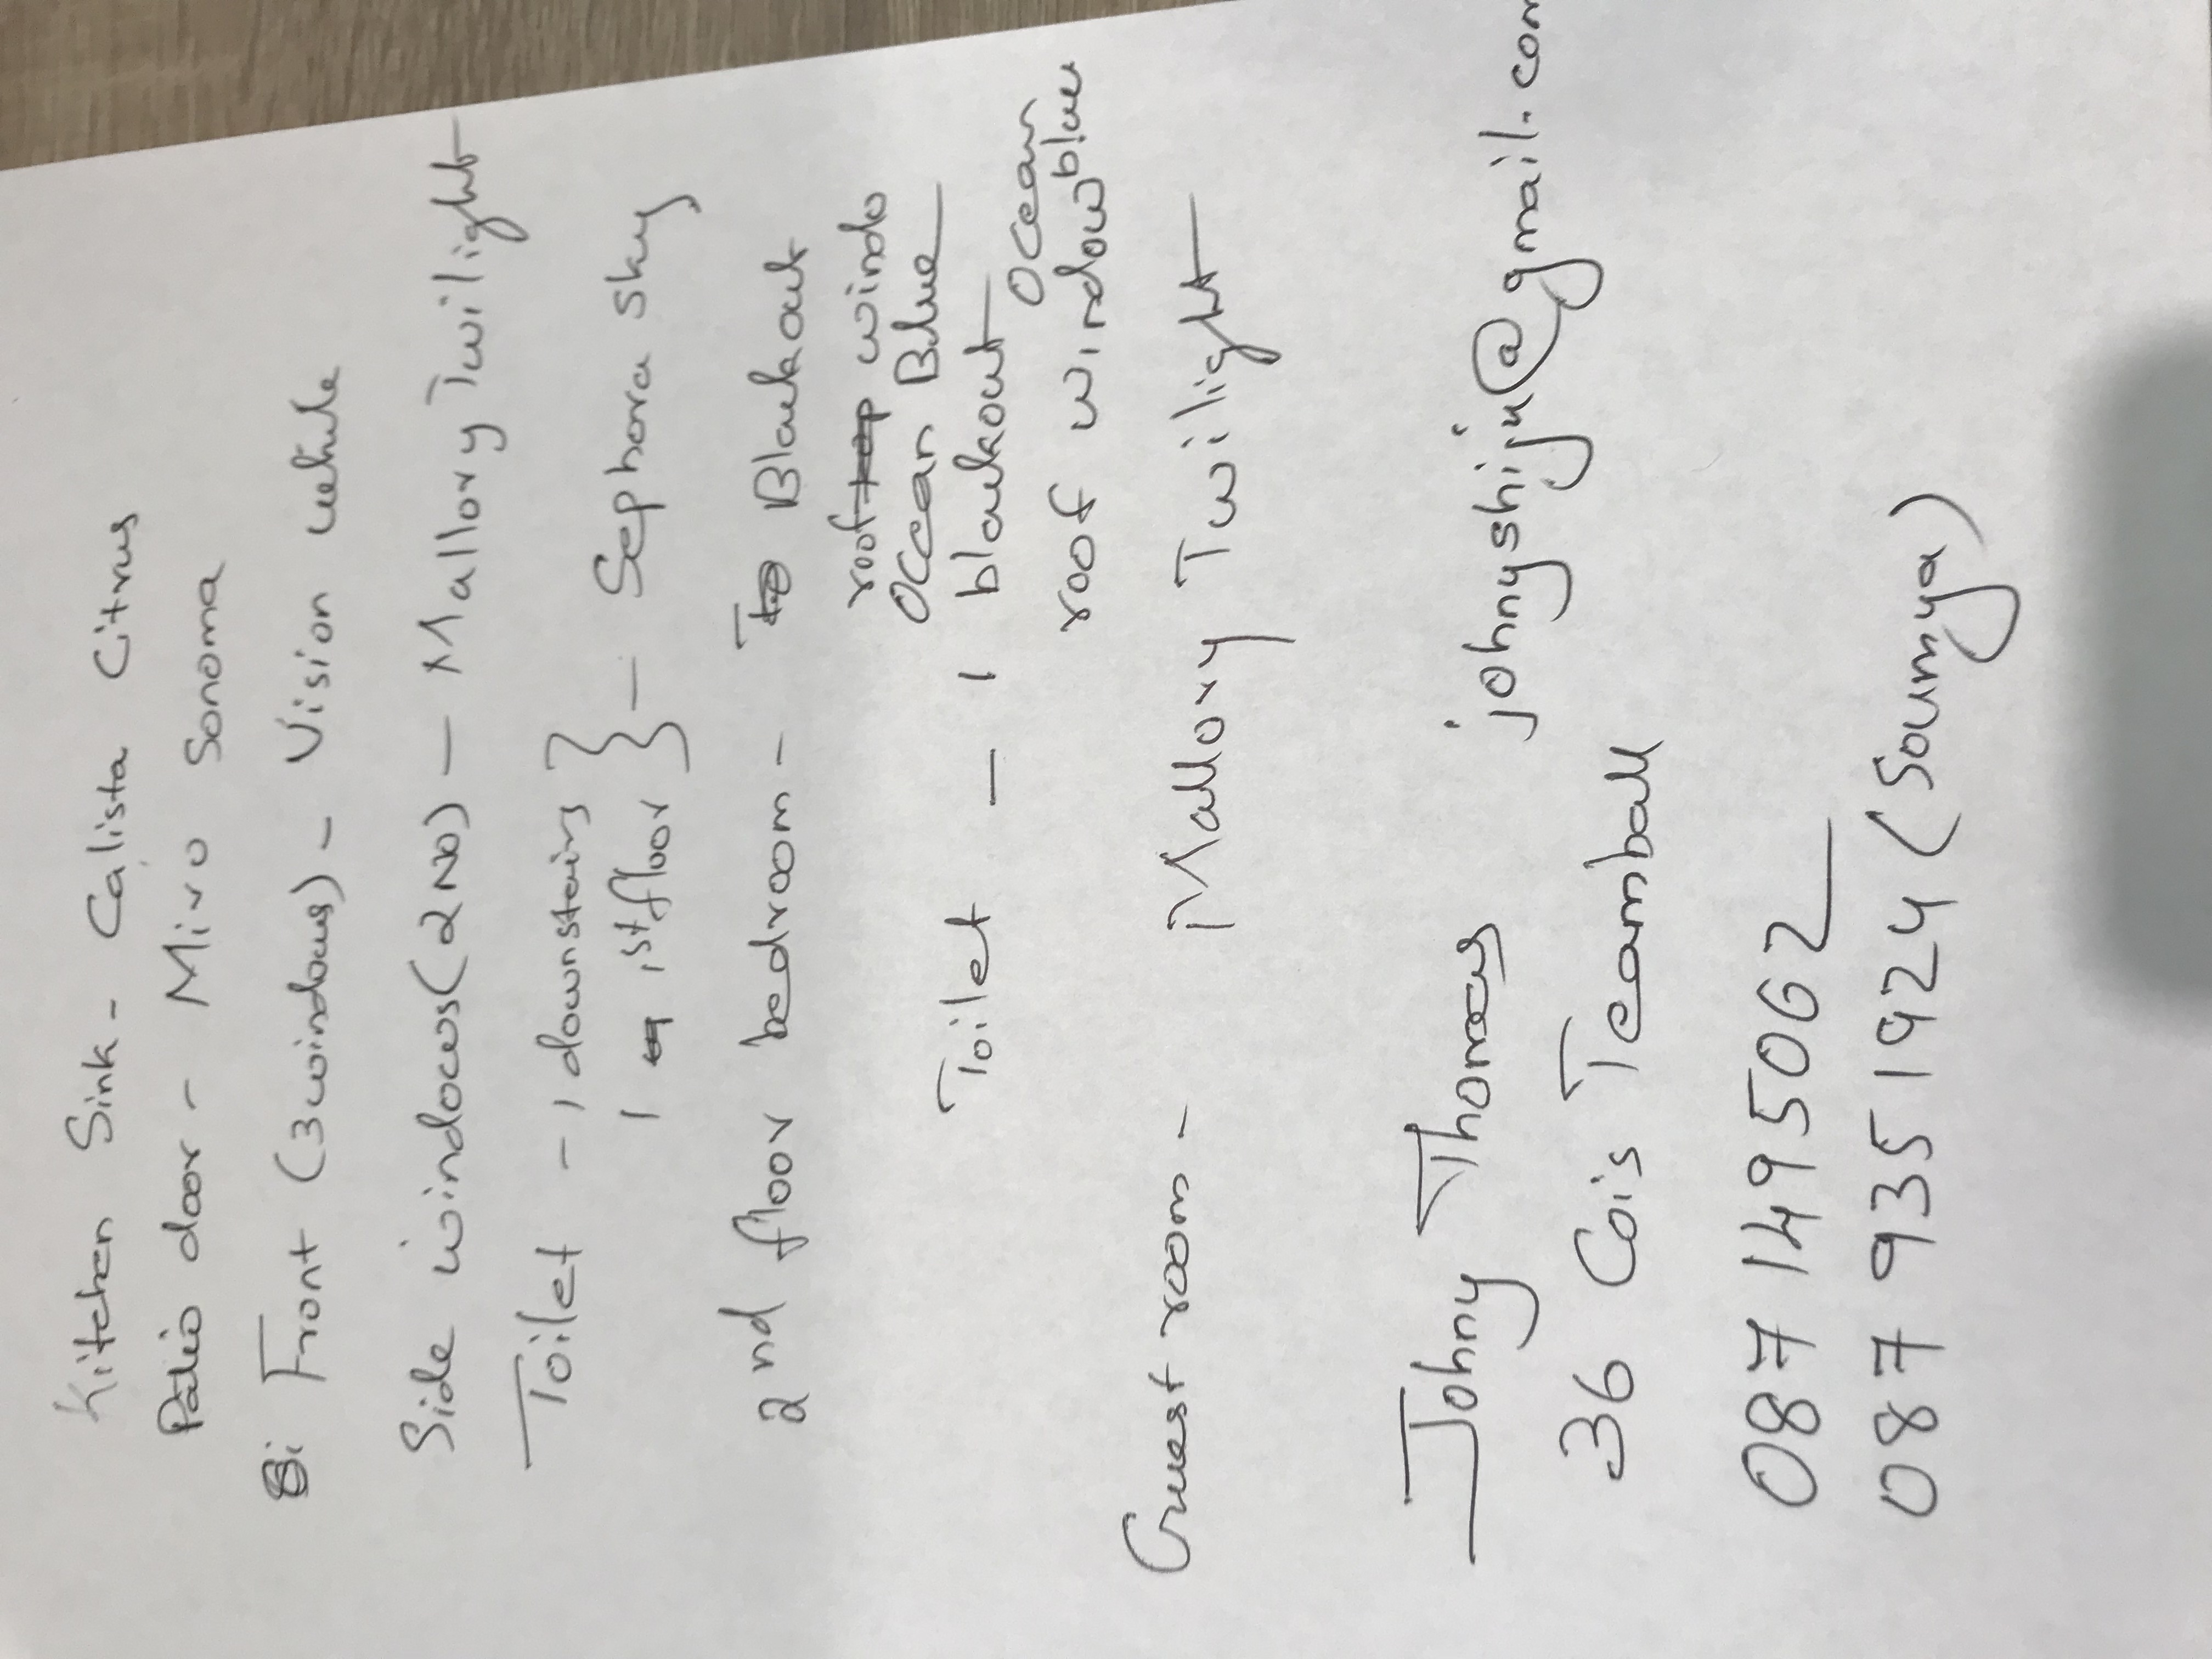 Kitchen Sink - Calista Citrus
Patio door - Miro Sonoma
Front (3 windows) - Vision white
Side windows (2 NO) - Mallory Twilight
Toilet - 1 downstairs } - Sephora sky
1 1st floor }
2nd floor bedroom - Blaukout
roof windo
Ocean Blue
Toilet - 1 blaukout
roof window Ocean blue
Guest room - Mallory Twilight
Johny Thomas johnyshiju@gmail.com
36 Cois Teamball
087 1495062
087 9351924 (Soumya)